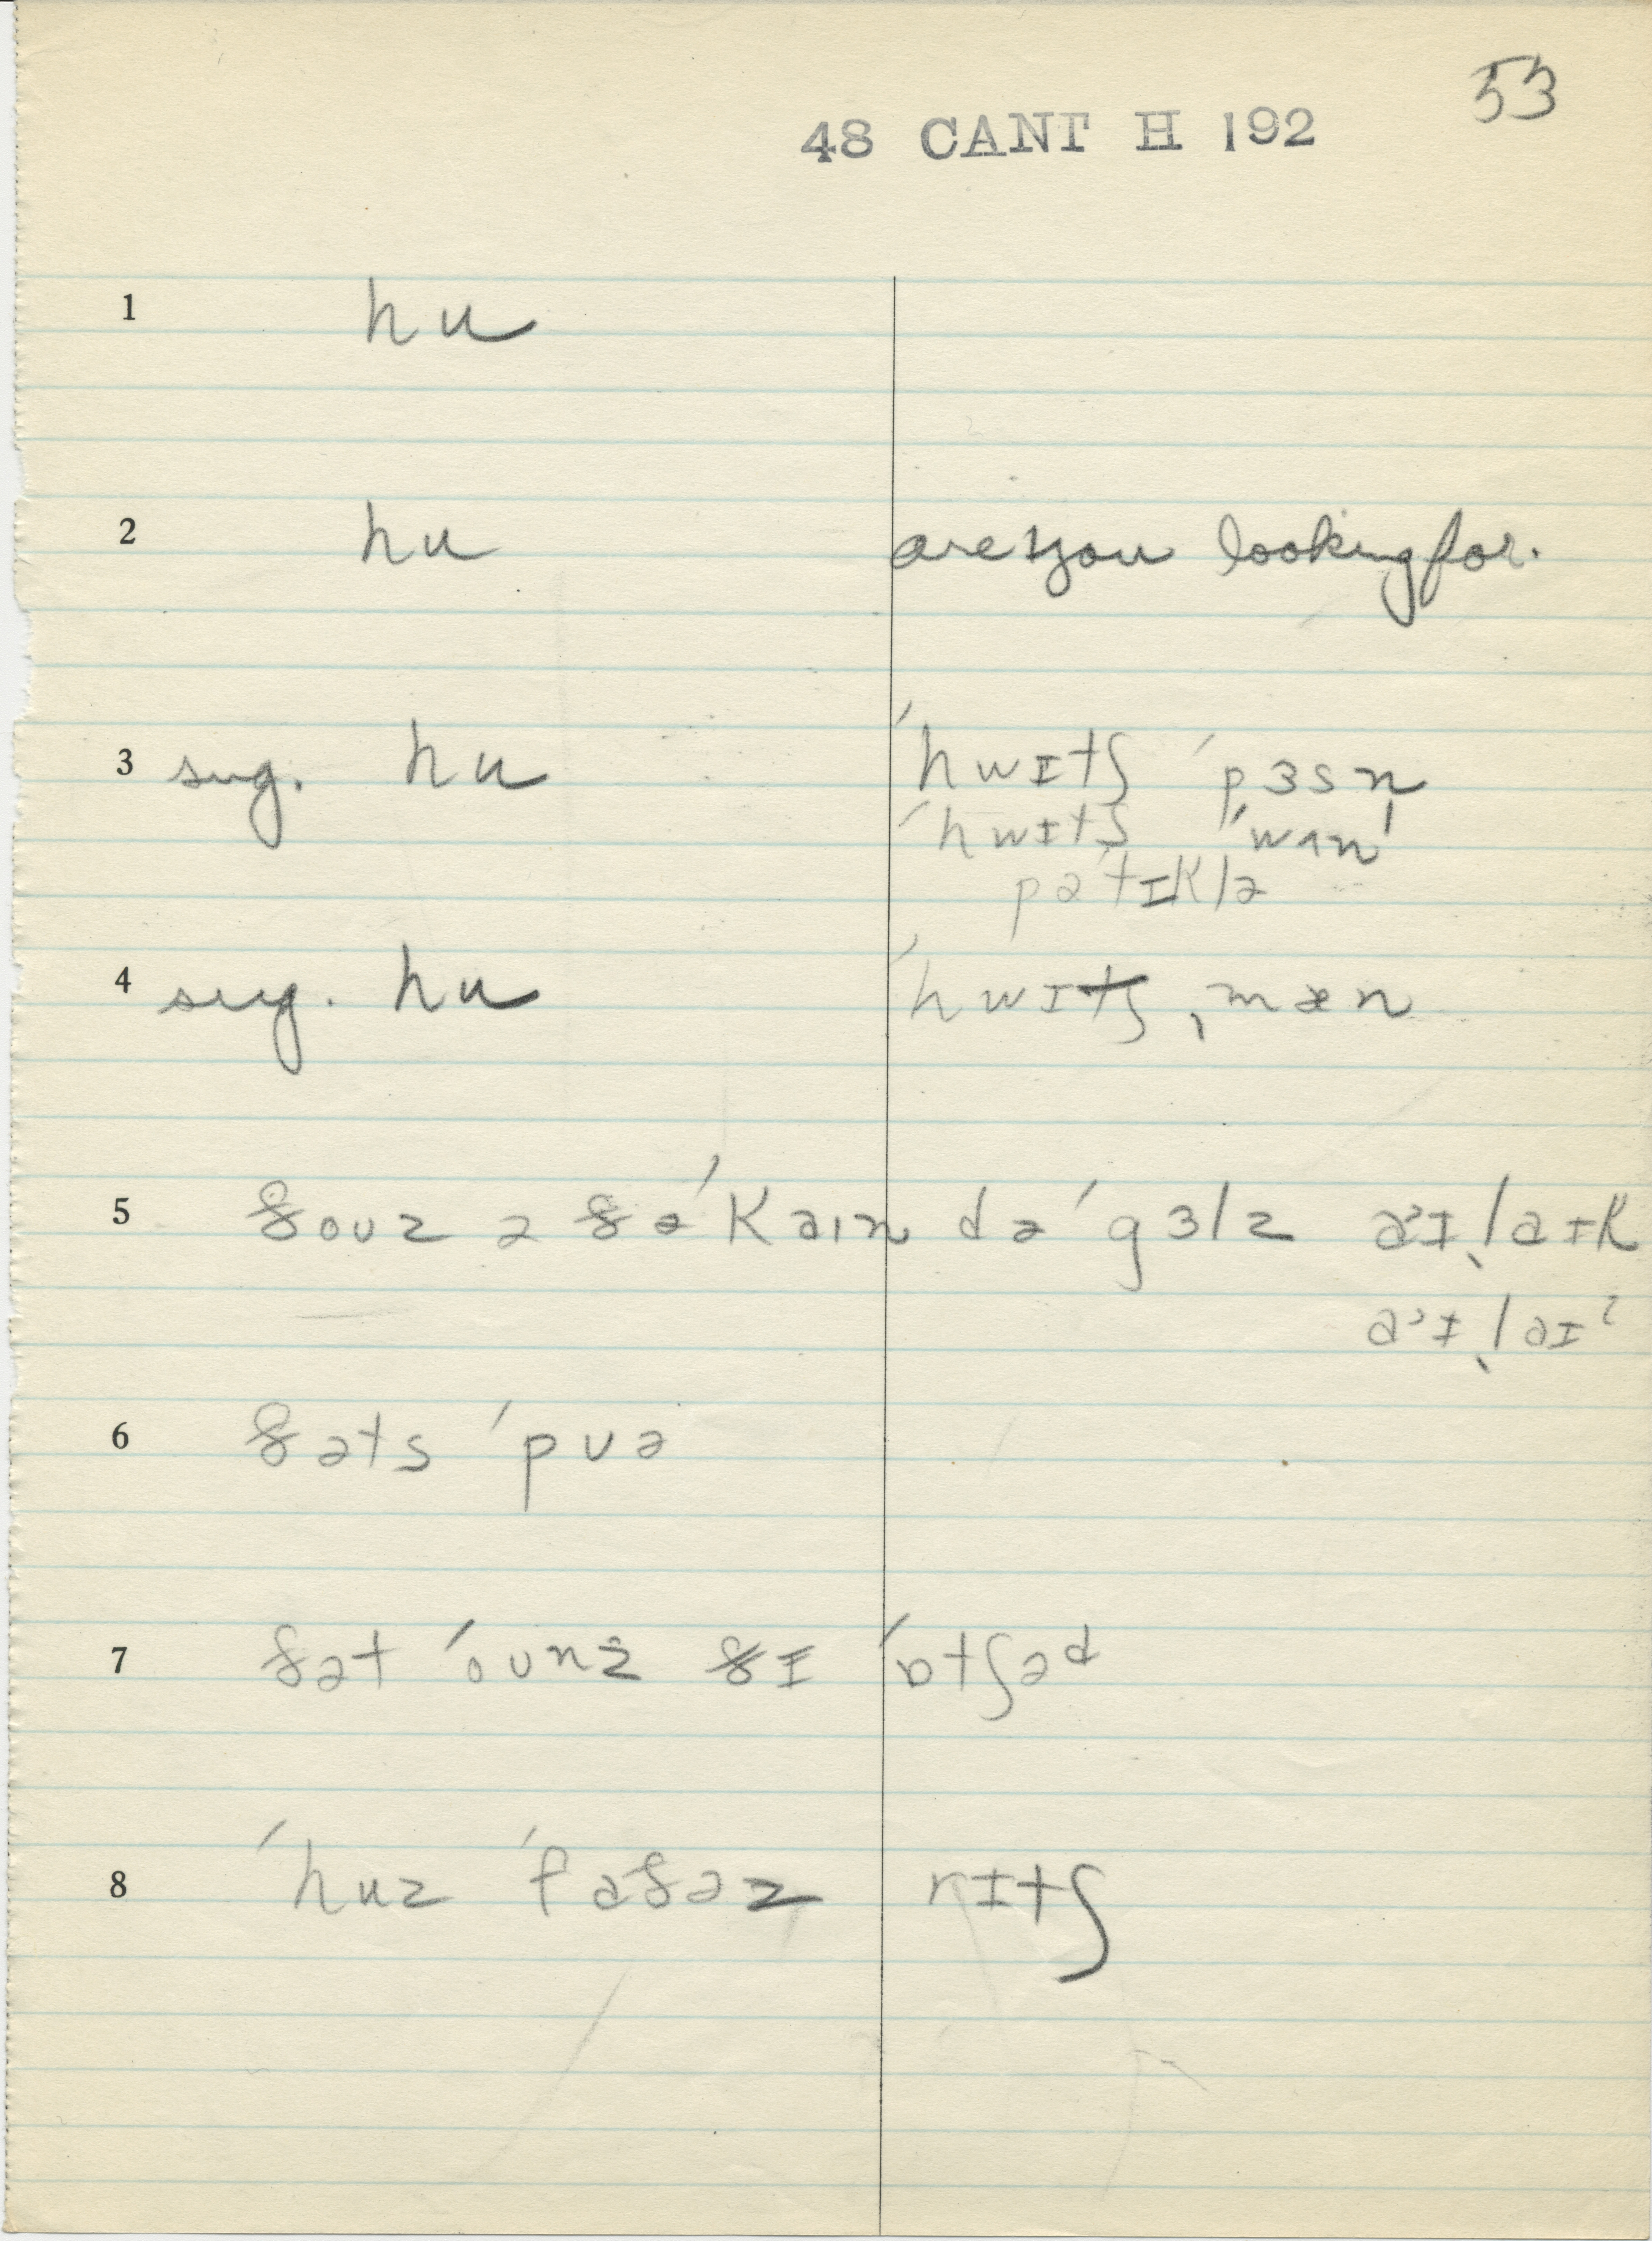 53
48 CANT H 192
1 hu
2 hu are you looking for.
3 sug. hu ˈhwɪtʃ ˈpɜsn̩
ˈhwɪtʃ ˈwʌn
pəˈtɪklə
4 sug. hu ˈhwɪtʃ ˌmæn
5 ðouz ə ðə ˈkaɪn də ˈgɜlz aˀɪ ˌlaɪk
aˀɪ ˌlaɪˀ
6 ðəts ˈpuə
7 ðət ˈounz ðɪ ˈɒtʃəd
8 ˈhuz ˈfaðəz rɪtʃ